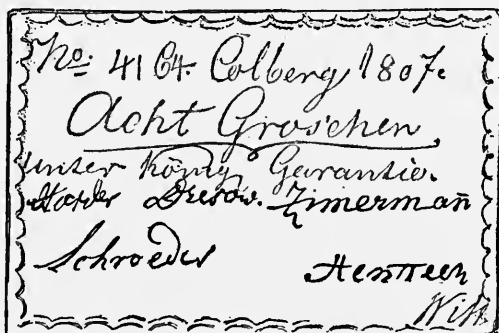 No: 4164. Colberg 1807.
Acht Groschen,
unter König. Garantie.
Dresow. Zimermañ
Schroeder